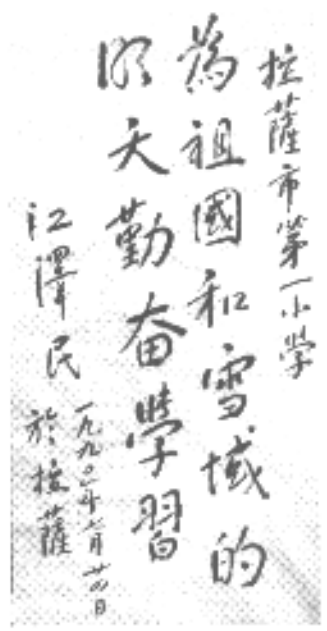 拉薩市第一小學
為祖國和雪域的
明天勤奋學習
江澤民
一九九〇年七月廿四日
於拉薩